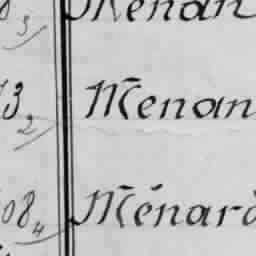 3 Menan
3 2 Menan
08 4 Ménard